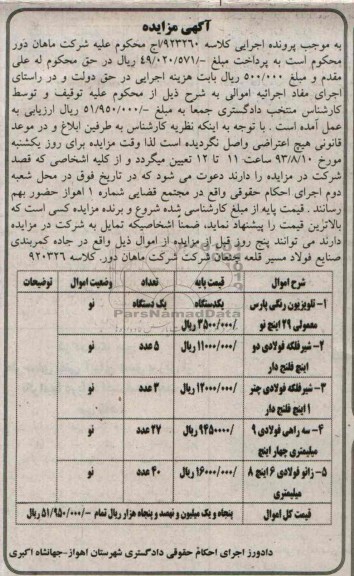 آگهی مزایده
به موجب پرونده اجرایی کلاسه ۹۲۳۲۶۰/اج محکوم علیه شرکت ماهان دور
محکوم است به پرداخت مبلغ -/۴۹/۰۲۰/۵۷۱ ریال در حق محکوم له علی
مقدم و مبلغ ۵۰۰/۰۰۰ ریال بابت هزینه اجرایی در حق دولت و در راستای
اجرای مفاد اجرائیه اموالی به شرح ذیل از محکوم علیه توقیف و توسط
کارشناس منتخب دادگستری جمعا به مبلغ -/۵۱/۹۵۰/۰۰۰ ریال ارزیابی به
عمل آمده است . با توجه به اینکه نظریه کارشناس به طرفین ابلاغ و در موعد
قانونی هیچ اعتراضی واصل نگردیده است لذا وقت مزایده برای روز یکشنبه
مورخ ۹۳/۸/۱۰ ساعت ۱۱ تا ۱۲ تعیین میگردد و از کلیه اشخاصی که قصد
شرکت در مزایده را دارند دعوت می شود که در تاریخ فوق در محل شعبه
دوم اجرای احکام حقوقی واقع در مجتمع قضایی شماره ۱ اهواز حضور بهم
رسانند . قیمت پایه از مبلغ کارشناسی شده شروع و برنده مزایده کسی است که
بالاترین قیمت را پیشنهاد نماید، ضمنا اشخاصیکه تمایل به شرکت در مزایده
دارند می توانند پنج روز قبل از مزایده از اموال ذیل واقع در جاده کمربندی
صنایع فولاد مسیر قلعه چنعان شرکت شرکت ماهان دور. کلاسه ۹۲۰۳۲۶
شرح اموال قیمت پایه تعداد وضعیت اموال توضیحات
۱- تلویزیون رنگی پارس یکدستگاه یک دستگاه نو
معمولی ۲۹ اینچ نو /۳۵۰۰/۰۰۰ ریال
۲- شیرفلکه فولادی دو /۱۱۰۰۰/۰۰۰ ریال ۵ عدد نو
اینچ فلنج دار
۳- شیرفلکه فولادی چنر /۱۲۰۰۰/۰۰۰ ریال ۳ عدد نو
۱ اینچ فلنج دار
۴- سه راهی فولادی ۹ /۹۴۵۰۰۰۰ ریال ۲۷ عدد نو
میلیمتری چهار اینچ
۵- زانو فولادی ۶ اینچ ۸ /۱۶۰۰۰/۰۰۰ ریال ۴۰ عدد نو
میلیمتری
قیمت کل اموال پنجاه و یک میلیون و نهصد و پنجاه هزار ریال تمام -/۵۱/۹۵۰/۰۰۰ ریال
دادورز اجرای احکام حقوقی دادگستری شهرستان اهواز-جهانشاه اکبری